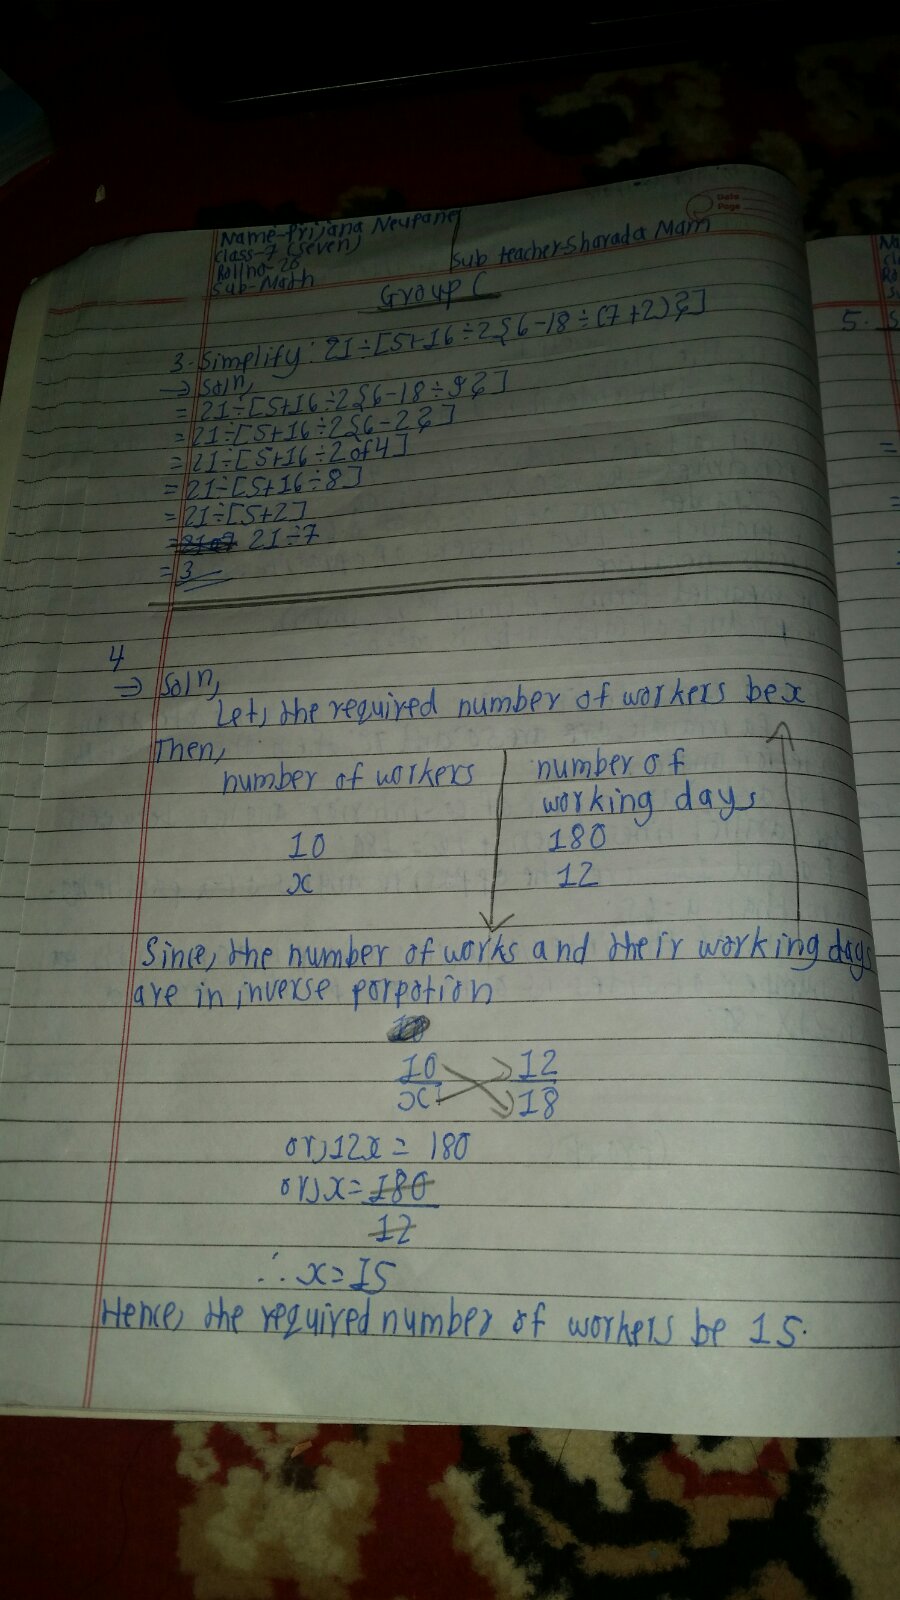 Date
Page
Name-Prijana Neupane
class-7 (seven)
Roll no-26
Sub-Math
Sub teacher-Sharada Mam
Group C
3. Simplify: 21÷[5+16÷2{6-18÷(7+2)}]
→ Soln,
= 21÷[5+16÷2{6-18÷9}]
= 21÷[5+16÷2{6-2}]
= 21÷[5+16÷2 of 4]
= 21÷[5+16÷8]
= 21÷[5+2]
= 21÷7
= 3
4
⇒ Soln,
Let, the required number of workers be x
Then,
number of workers number of
working days
10 180
x 12
Since, the number of works and their working days
are in inverse porpotion
10 12
x 18
or, 12x = 180
or, x = 180
12
∴ x = 15
Hence, the required number of workers be 15.
5. S
=